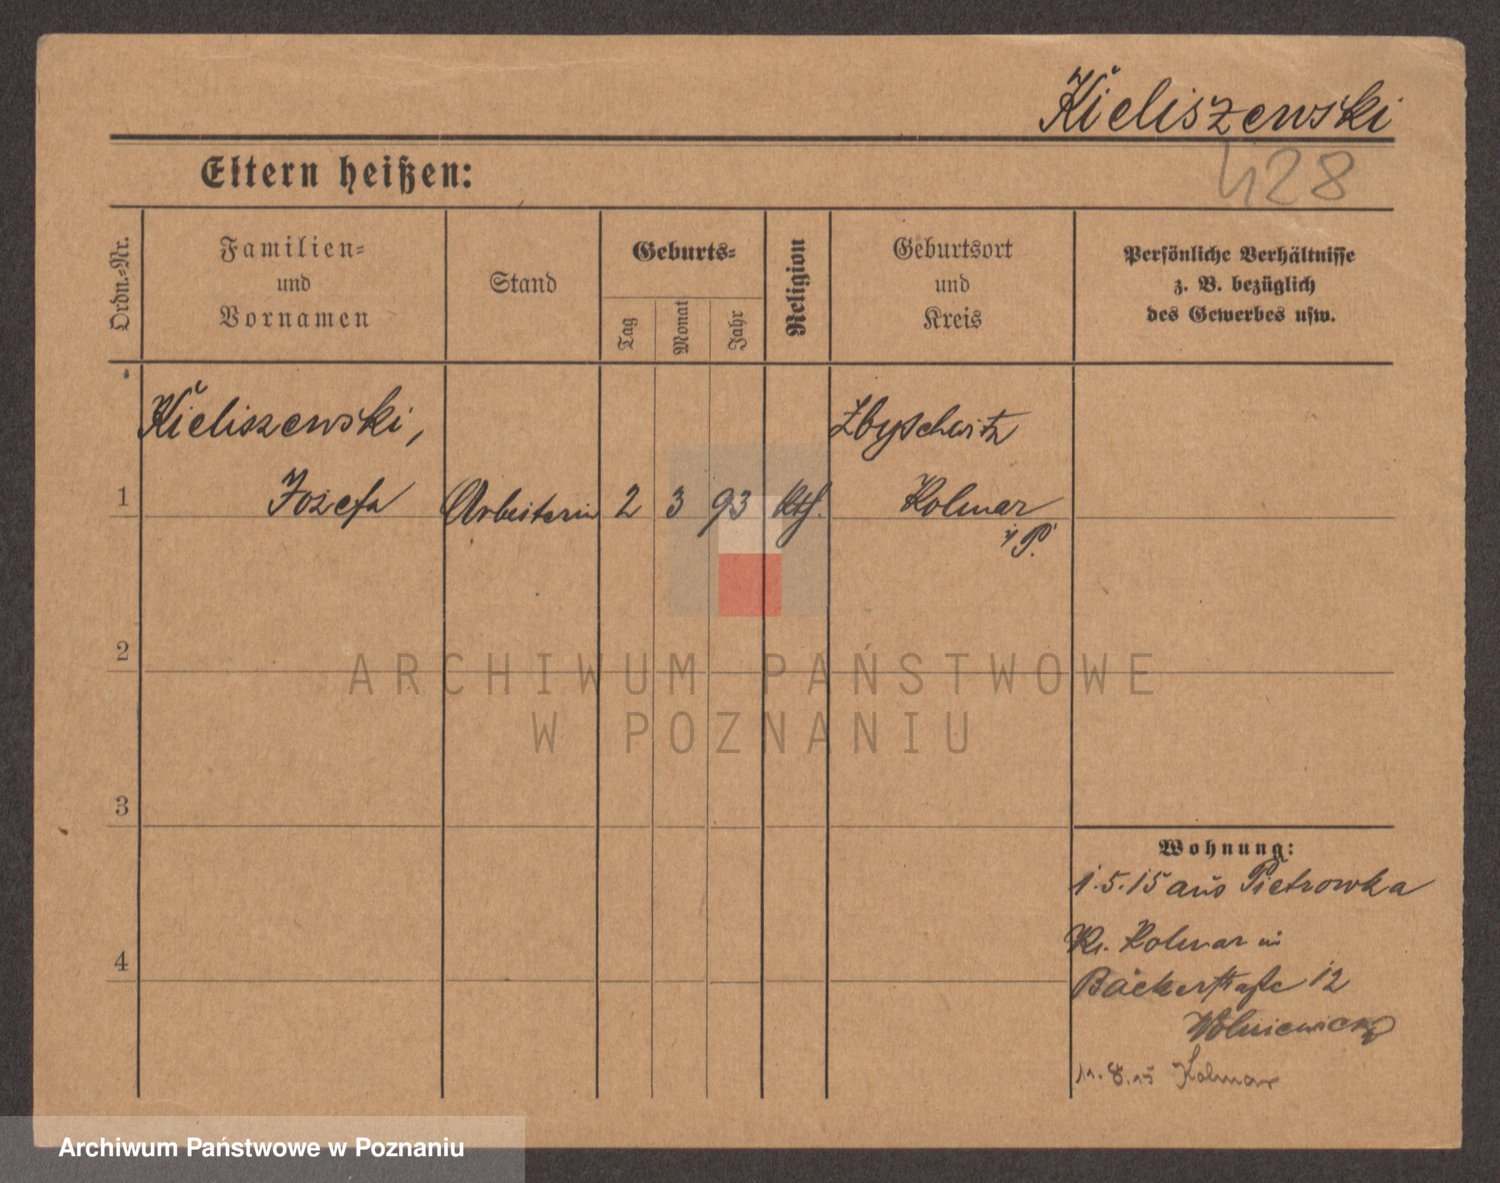 Kieliszewski
428
Eltern heißen:
Ordn.-Nr.
Familien-
und
Vornamen
Stand
Geburts-
Tag
Monat
Jahr
Religion
Geburtsort
und
Kreis
Persönliche Verhältnisse
z. B. bezüglich
des Gewerbes usw.
Kieliszewski,
Zbyschwitz
1 Jozefa Arbeiterin 2 3 93 kth. Kolmar
i/P.
2
ARCHIWUM PAŃSTWOWE
W POZNANIU
3
Wohnung:
1.5.15 aus Pietrowka
Kr. Kolmar in
4
Bäckerstraße 12
Wolniewicz
11.8.15 Kolmar
Archiwum Państwowe w Poznaniu